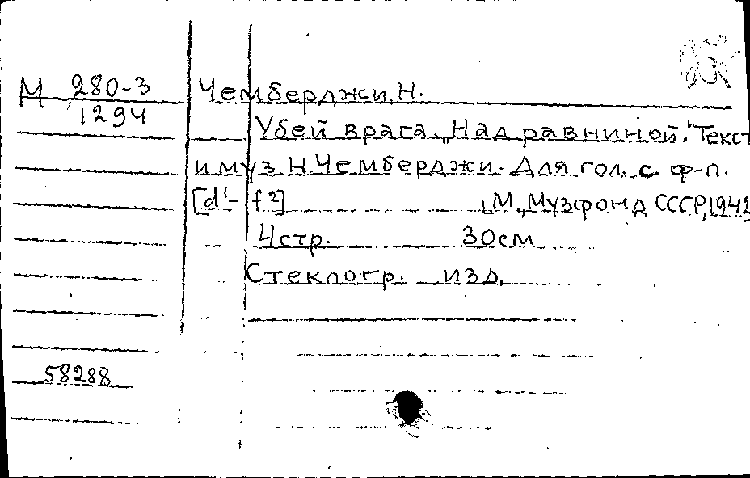 М 280-3 Чемберджи, Н.
1294
Убей врага. „Над равниной." Текст
и муз. Н. Чемберджи. Для гол. с. ф-п.
[d¹- f²] М., Музфонд СССР, 1942
4 стр. 30 см
Стеклогр. изд.
58288